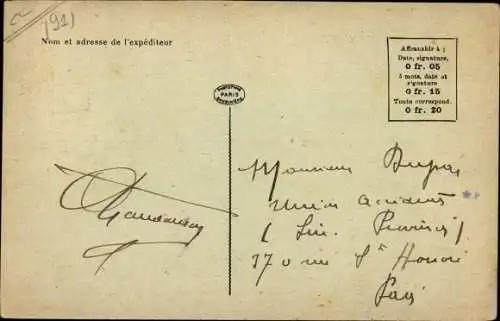 (91)
Nom et adresse de l'expéditeur
Affranchir à :
Date, signature,
0 fr. 05
5 mots, date et
signature
0 fr. 15
Toute correspond.
0 fr. 20
PARIS
Monsieur Dupas
Union accidents
(Sin. Province)
370 rue St Honoré
Paris